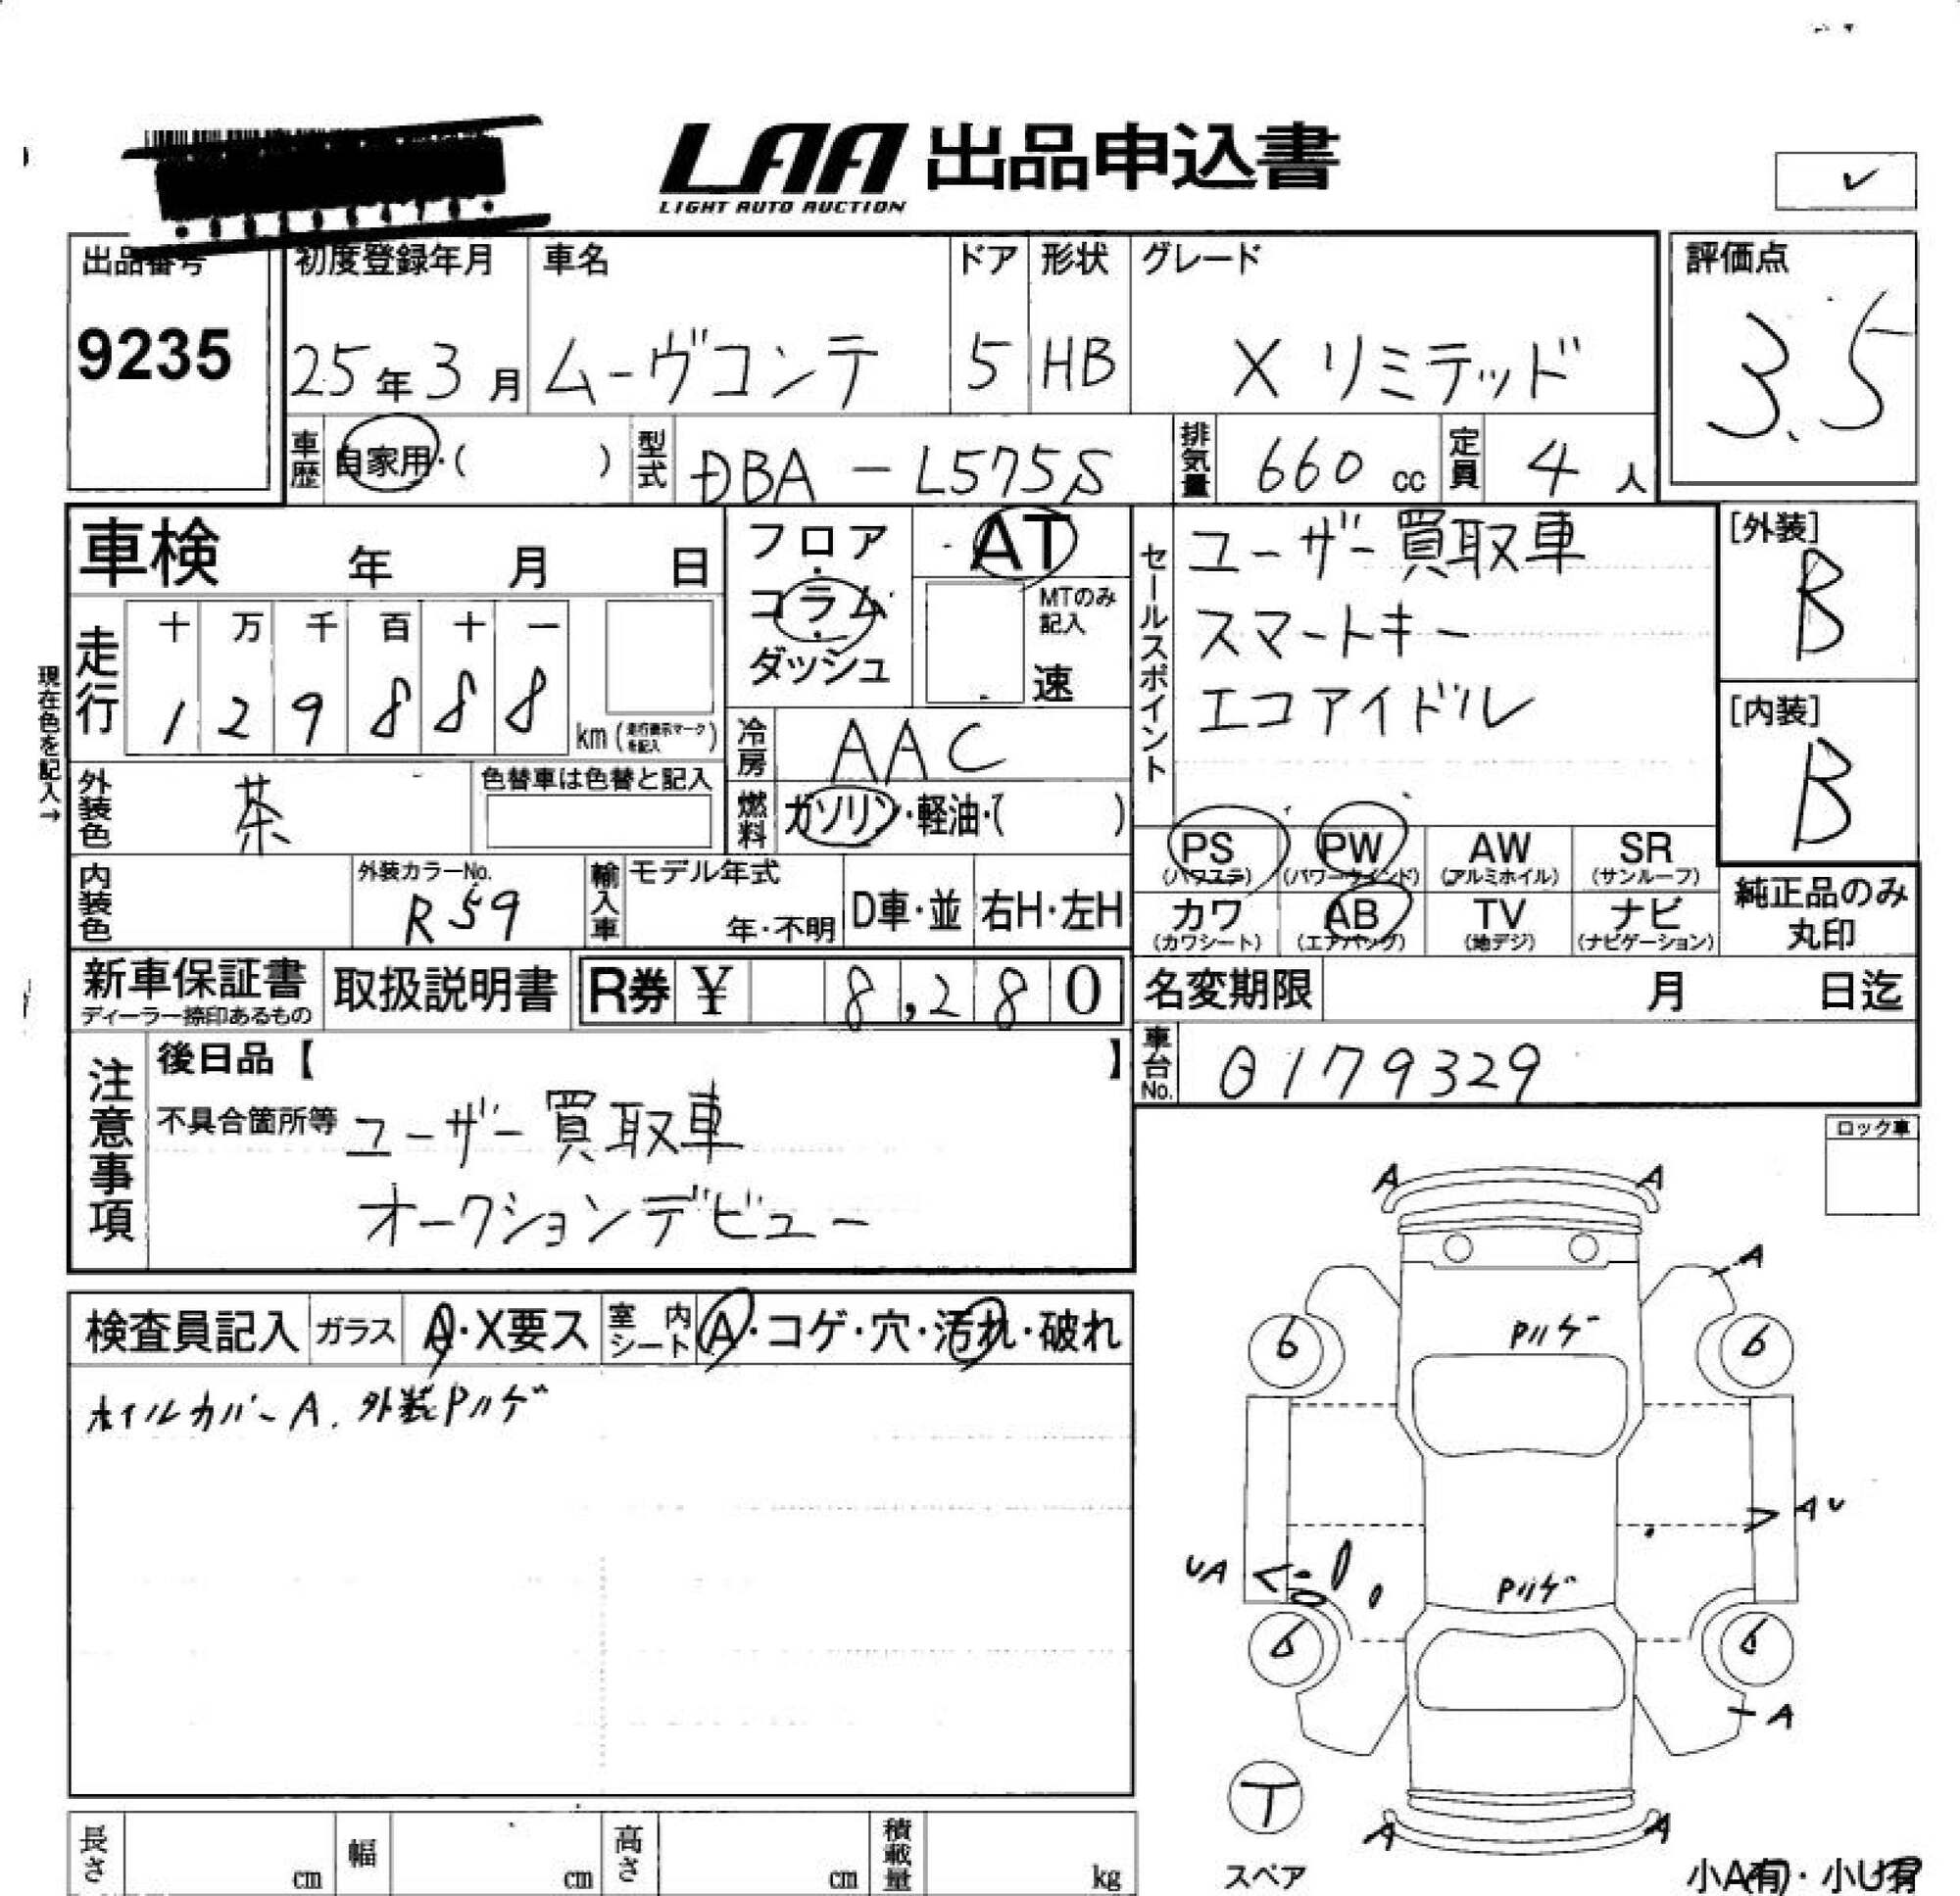 LAA 出品申込書
LIGHT AUTO AUCTION
出品番号 初度登録年月 車名 ドア 形状 グレード 評価点
9235 25年3月 ムーヴコンテ 5 HB X リミテッド 3.5
車歴 自家用・( ) 型式 DBA-L575S 排気量 660 cc 定員 4 人
車検 年 月 日
フロア・コラム・ダッシュ
AT
MTのみ記入
速
セールスポイント
ユーザー買取車
スマートキー
エコアイドル
[外装]
B
[内装]
B
現在色を記入→
走行 十 万 千 百 十 一
1 2 9 8 8 8 km (走行表示マークを記入)
冷房 AAC
燃料 ガソリン・軽油・( )
外装色 茶 色替車は色替と記入
内装色 外装カラーNo. R59
輸入車 モデル年式 年・不明 D車・並 右H・左H
PS (パワステ) PW (パワーウインド) AW (アルミホイル) SR (サンルーフ)
カワ (カワシート) AB (エアバッグ) TV (地デジ) ナビ (ナビゲーション)
純正品のみ丸印
新車保証書 ディーラー捺印あるもの 取扱説明書 R券 ¥ 8,280
名変期限 月 日迄
車台No. 0179329
注意事項
後日品【 】
不具合箇所等 ユーザー買取車
オークションデビュー
ロック車
検査員記入 ガラス A・X要ス 室内シート A・コゲ・穴・汚れ・破れ
ホイルカバーA. 外装Pハゲ
A A
A
Pハゲ
6 6
AU
UA
Pハゲ
6 6
A
T
スペア
A A
長さ cm 幅 cm 高さ cm 積載量 kg
小A有・小U有